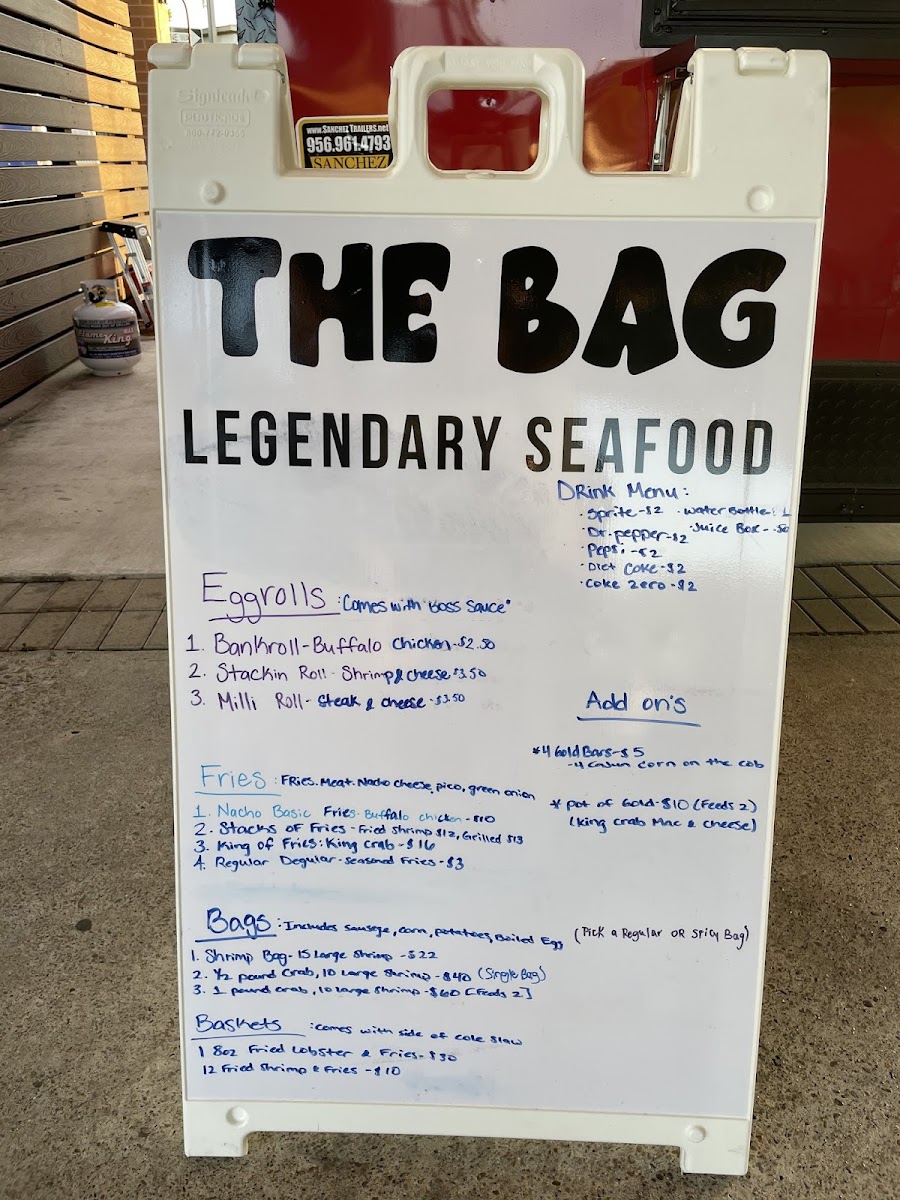 Signicade
PLASTICADE
800-772-0355
www.SANCHEZ TRAILERS.net
956.961.4793
SANCHEZ
THE BAG
LEGENDARY SEAFOOD
DRink Menu:
· Sprite-$2 · Water Bottle: 1
· Dr. pepper-$2 · Juice Box-.50
· Pepsi-$2
· Diet Coke-$2
· Coke Zero-$2
Eggrolls : Comes with "Boss Sauce"
1. Bankroll-Buffalo Chicken-$2.50
2. Stackin Roll- Shrimp & cheese $3.50
3. Milli Roll- Steak & cheese-$3.50
Add on's
*4 Gold Bars-$5
-4 Cajun corn on the cob
* Pot of Gold-$10 (Feeds 2)
(King Crab Mac & cheese)
Fries : FRies. Meat. Nacho cheese, pico, green onion
1. Nacho Basic Fries-Buffalo chicken-$10
2. Stacks of Fries-Fried Shrimp $12, Grilled $13
3. King of Fries: King crab-$16
4. Regular Degular-seasoned Fries-$3
Bags : Includes sausage, corn, potatoes, Boiled Egg (Pick a Regular OR Spicy Bag)
1. Shrimp Bag-15 Large Shrimp -$22
2. 1/2 pound Crab, 10 Large Shrimp-$40 (Single Bag)
3. 1 pound crab, 10 large Shrimp-$60 [Feeds 2]
Baskets : comes with side of cole slaw
1 8oz Fried Lobster & Fries-$30
12 Fried Shrimp & Fries -$10
King